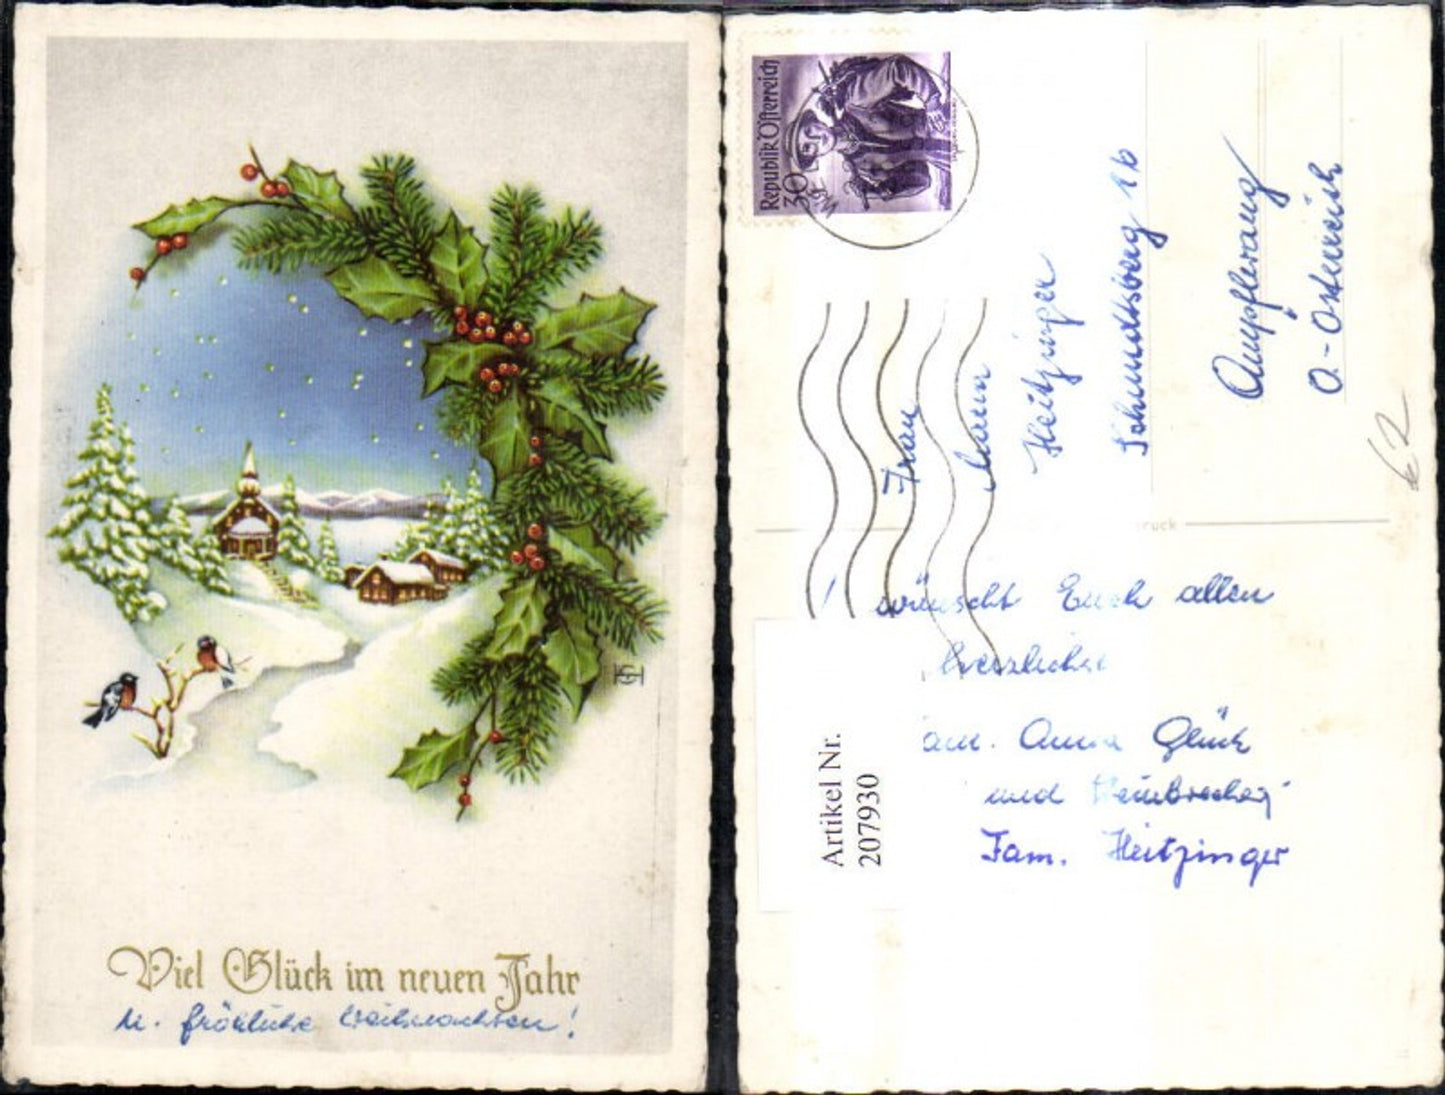 Viel Glück im neuen Jahr
u. fröhliche Weihnachten!
Republik Österreich
30
Frau
Anna
Heitzinger
Schmidtsberg 16
Ampflwang
O.-Österreich
62
wünscht Euch allen
herzlichst
am. Anna Glück
und
Fam. Heitzinger
Artikel Nr.
207930